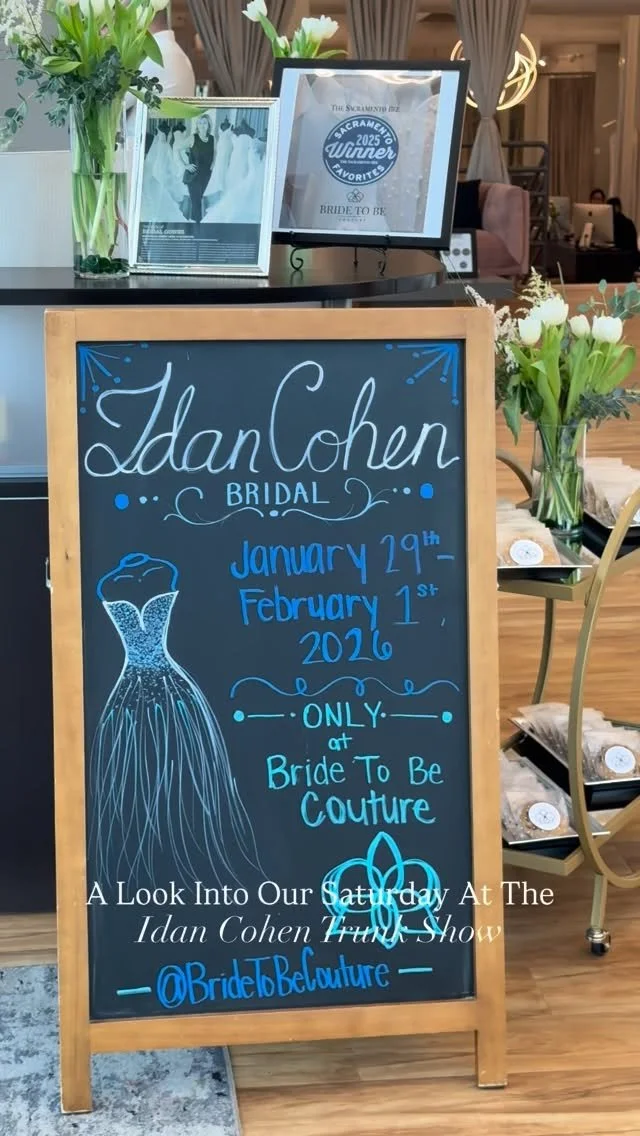 The Sacramento Bee
SACRAMENTO
2025
Winner
THE SACRAMENTO BEE
FAVORITES
BRIDE TO BE
COUTURE
Idan Cohen
BRIDAL
January 29th-
February 1st,
2026
ONLY
at
Bride To Be
Couture
A Look Into Our Saturday At The
Idan Cohen Trunk Show
@BrideToBeCouture